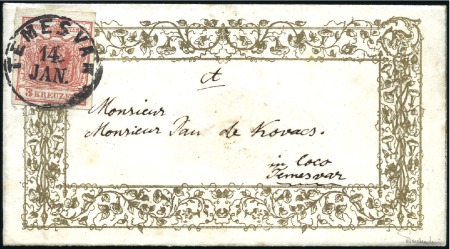 TEMESVAR
14.
JAN.
3 KREUZER
A
Monsieur
Monsieur Jan de Kovacs.
in loco
Temesvar